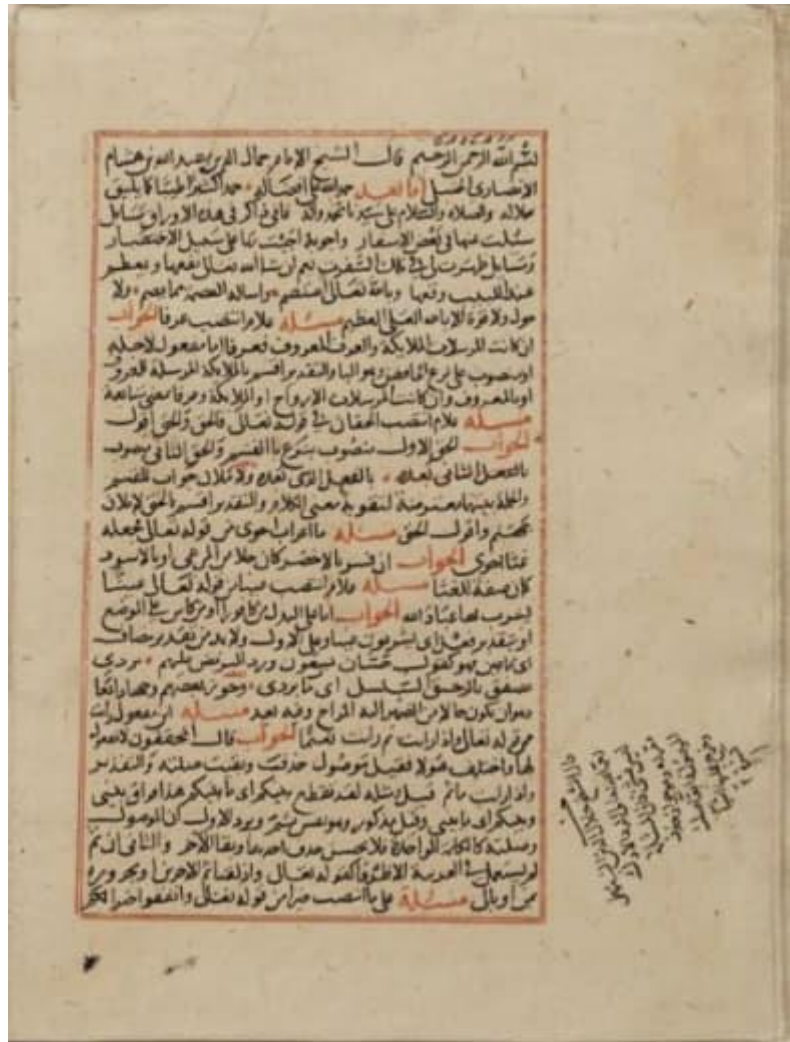 بسم الله الرحمن الرحيم قال الشيخ الامام جمال الدين عبد الله بن هشام
الانصاري الحنبلي اما بعد حمد الله على افضاله حمدا كثيرا طيبا كما يليق
بجلاله والصلاة والسلام على سيدنا محمد واله فاني ذاكر في هذه الاوراق مسايل
سئلت عنها في بعض الاسفار واجوبة اجبت بها على سبيل الاختصار
ومسايل ظهرت لي في ذلك السفر يعم ان شا الله تعالى نفعها ويعظم
عند اللبيب وقعها وبالله تعالى اعتصم واساله العصمة مما يصم ولا
حول ولا قوة الا بالله العلي العظيم مسئلة علام انتصب عرفا الجواب
ان كانت المرسلات الملايكة والعرف المعروف فعرفا اما مفعول لاجله
او منصوب على نزع الخافض وهو البا والتقدير اقسم بالملايكة المرسلة للمعروف
او بالمعروف وان كانت المرسلات الارواح او الملايكة وعرفا بمعنى متتابعة
مسئلة علام انتصب الحقان في قوله تعالى فالحق والحق اقول
الجواب الحق الاول منصوب بنزع با القسم والحق الثاني منصوب
بالفعل الذي بعده ولاملان جواب للقسم
والجملة بينهما معترضة لتقوية معنى الكلام والتقدير اقسم بالحق لاملان
جهنم واقول الحق مسئلة ما اعراب احوى من قوله تعالى فجعله
غثا احوى الجواب ان فسر بالاخضر كان حالا من المرعى او بالاسود
كان صفة للغثا مسئلة علام انتصب عينا من قوله تعالى عينا
يشرب بها عباد الله الجواب اما على البدل من كافورا او من كاس على الموضع
او بتقدير فعل اي يشربون عينا وعلى الاول ولا بد من تقدير مضاف
اي ما عين فهو كقول حسان يسقون من ورد البريص عليهم بردى
يصفق بالرحيق السلسل اي ما بردى وجوز بعضهم وجها رابعا
وهو ان يكون حالا من الضمير في مزاجها وفيه بعد مسئلة اين مفعول رايت
من قوله تعالى واذا رايت ثم رايت نعيما الجواب قال المحققون لا مفعول
لها واختلف هولا فقيل موصول حذف وبقيت صلته والتقدير
واذا رايت ما ثم قيل مثله لقد تقطع بينكم اي ما بينكم هذا فراق بيني
وبينك اي ما بيني وقيل مذكور وهو نفس ثم ويرد الاول ان الموصول
وصلته كالكلمة الواحدة فلا يحسن حذف احدهما وبقا الاخر والثاني ان ثم
لم يستعمل في العربية الا ظرفا كقوله تعالى وازلفنا ثم الاخرين او مجرورة
من او بالى مسئلة على ما انتصب خيرا من قوله تعالى وانفقوا خيرا لكم